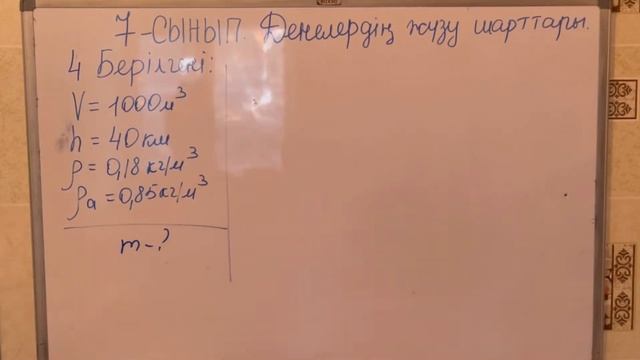 7-СЫНЫП. Денелердің жүзу шарттары.
4 Берілгені:
V = 1000м³
h = 40км
ρ = 0,18 кг/м³
ρa = 0,85кг/м³
m-?